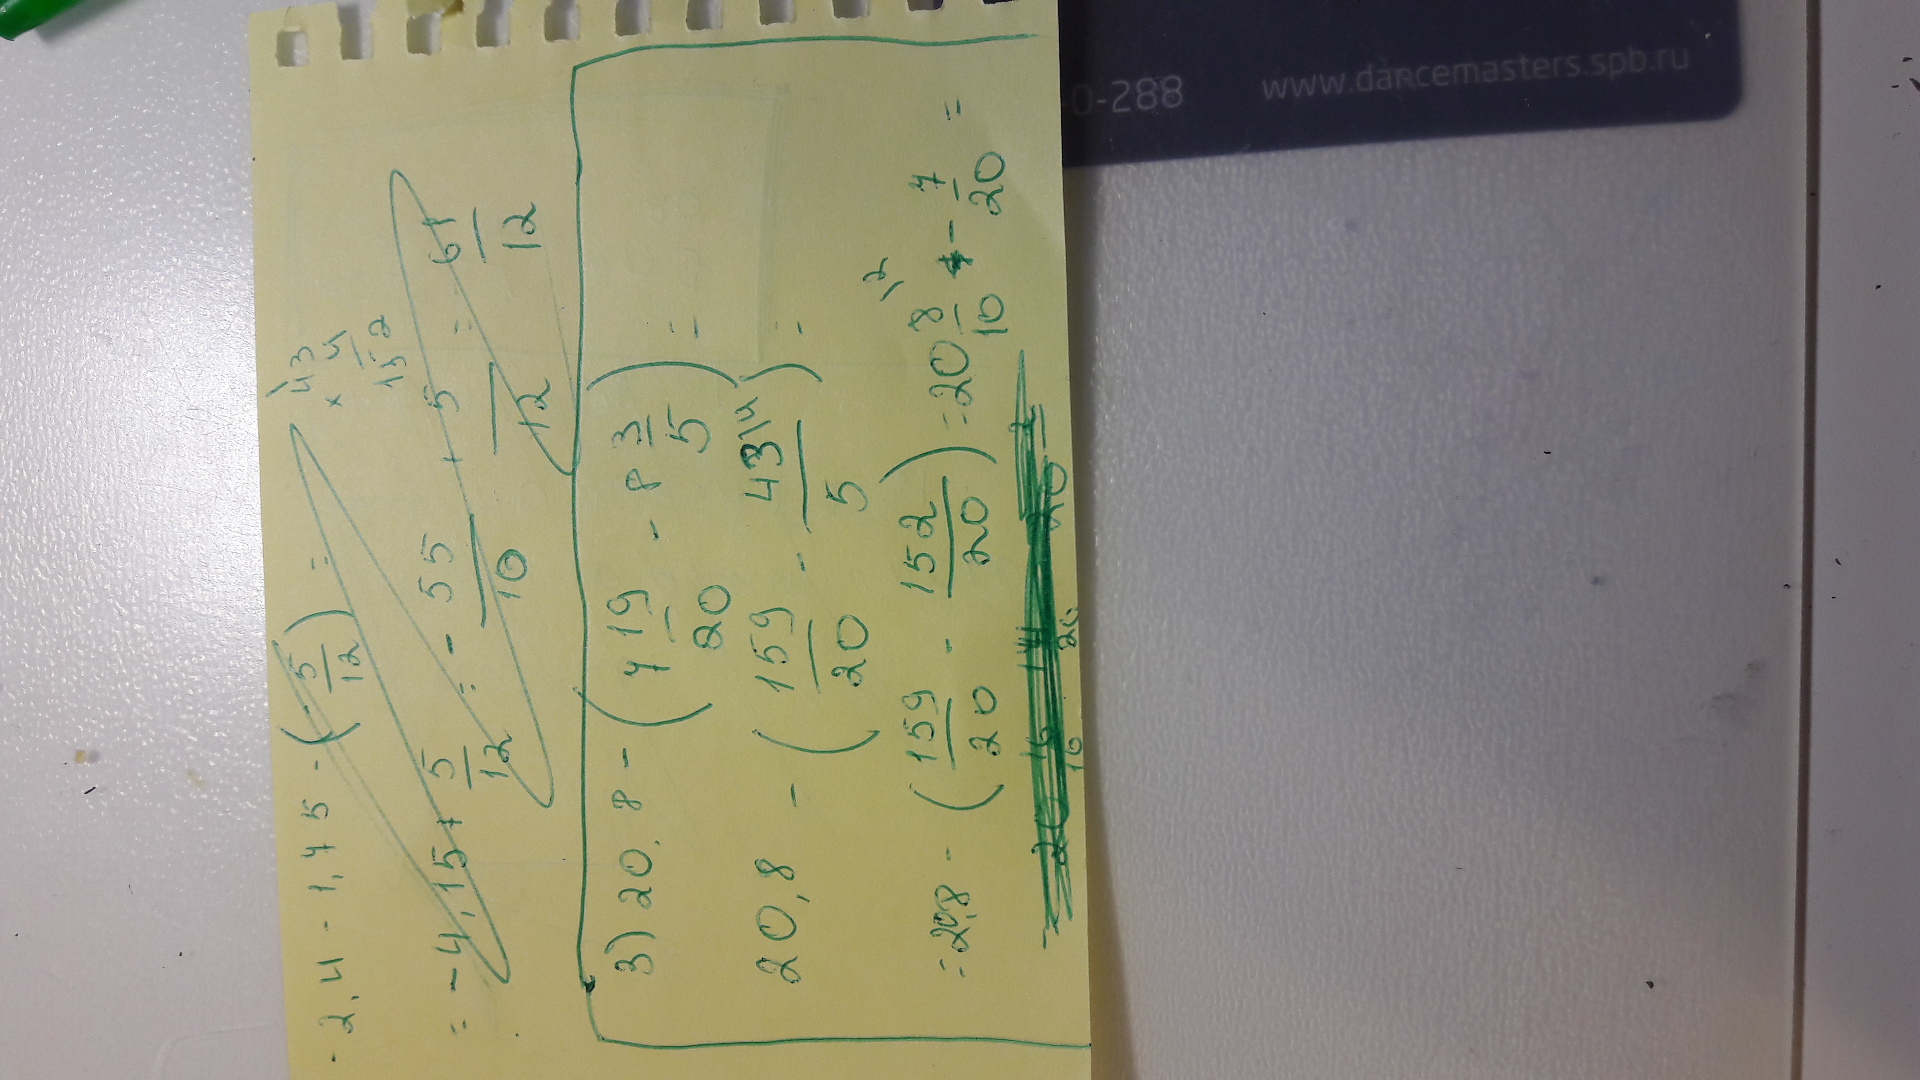 -2,4 - 1,75 - (-5/12) =
43
× 4
152
= -4,15 + 5/12 = -55/10 + 5/12 = 61/12
3) 20,8 - (7 19/20 - 8 3/5) =
20,8 - (159/20 - 43\4/5) =
= 20,8 - (159/20 - 152/20) = 20 8\2/10 - 7/20 =
-0-288
www.dancemasters.spb.ru